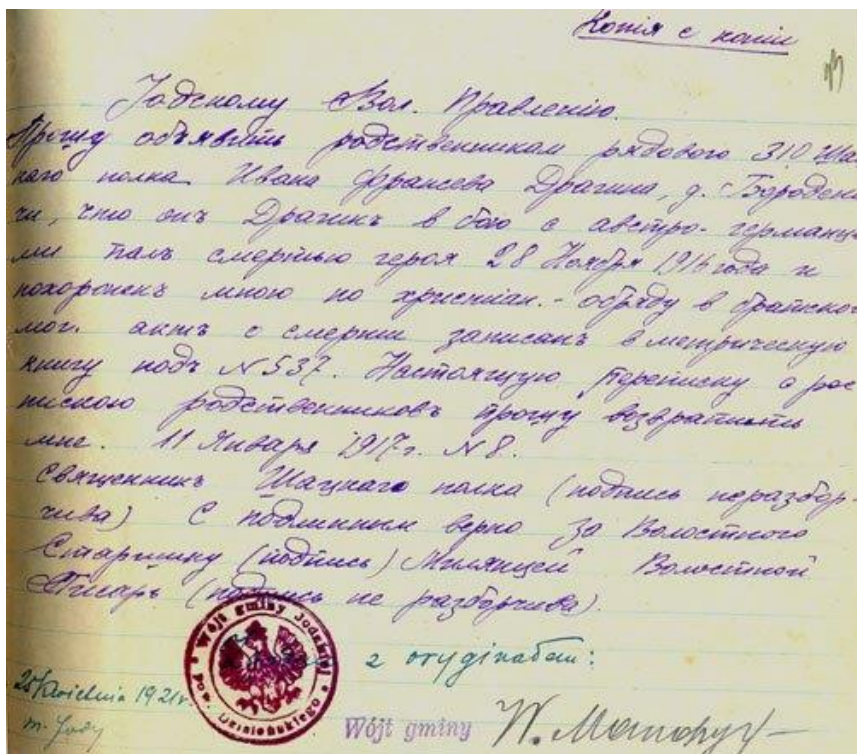 Копія с копіи
Іодскому Вол. Правленію.
Прошу объявить родственникам рядового 310 Шац
каго полка Ивана Францева Драгина, д. Бороден
чи, что онъ Драгинъ в бою с австро-германца
ми палъ смертью героя 28 Ноября 1916 года и
похороненъ мною по христіан.- обряду в братской
мог. актъ о смерти записанъ в метрическую
книгу подъ N 537. Настоящую переписку с рос
пискою родственниковъ прошу возвратить
мне. 11 Января 1917 г. N 8.
Священникъ Шацкаго полка (подпись неразбор-
чива) С подлинным верно за Волостного
Старшину (подпись) Милянцей Волостной
Писарь (подпись не разборчива).
z oryginałem:
Wójt gminy Jodzkiej
Pow. Dziśnieńskiego
25 Kwietnia 1921 r.
m. Jody
Wójt gminy